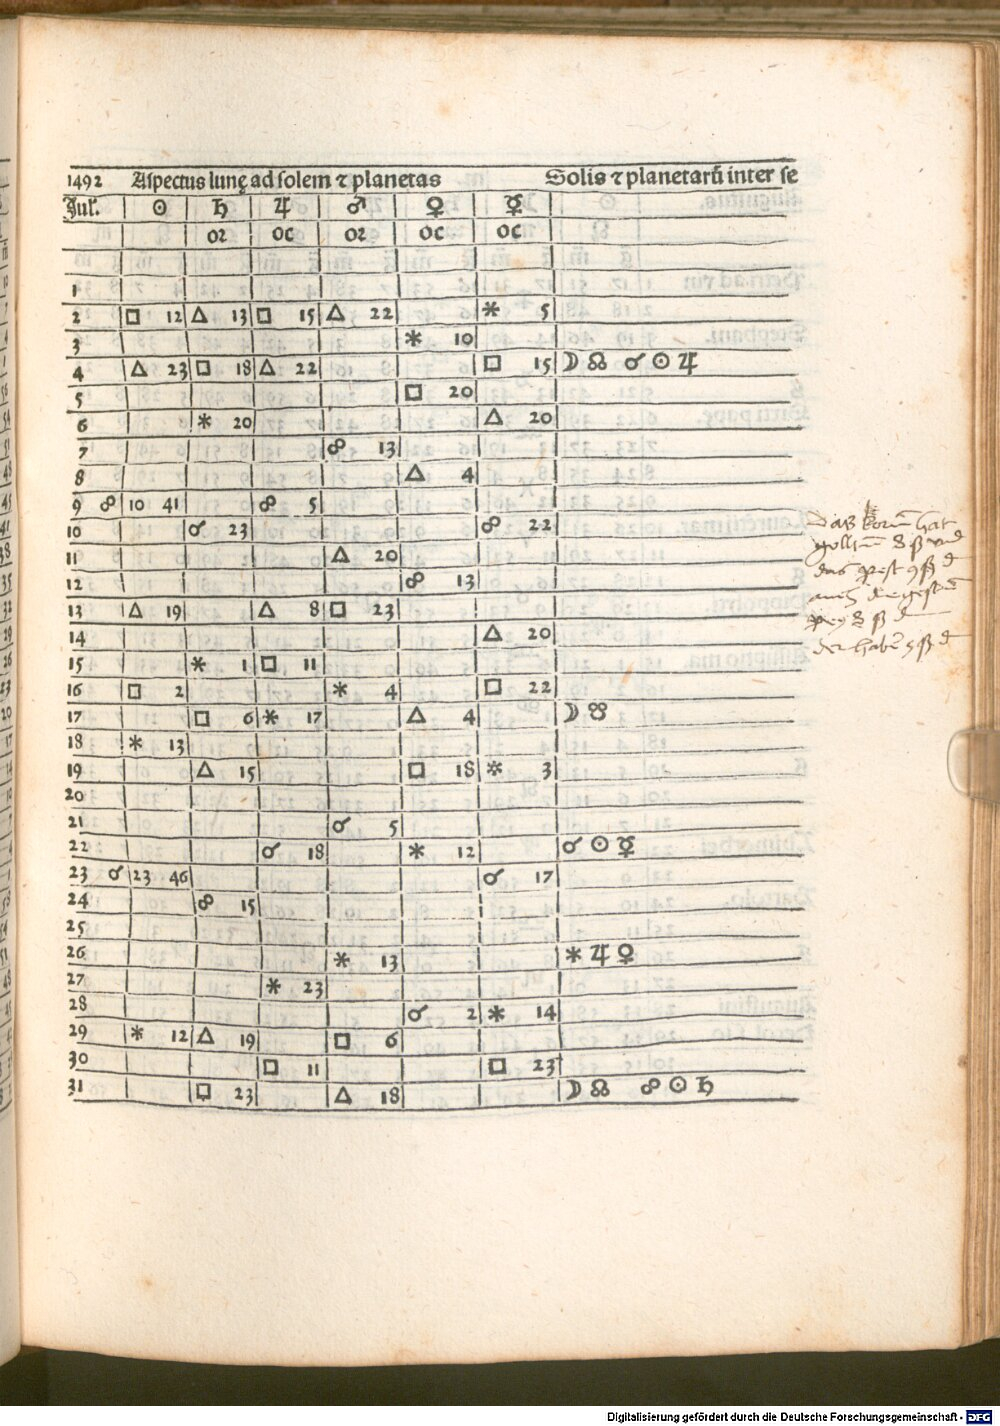 1492 Aspectus lunę ad solem ⁊ planetas Solis ⁊ planetarū inter se
Jul. ☉ ♄ ♃ ♂ ♀ ☿
or oc or oc oc
1
2 □ 12 △ 13 □ 15 △ 22 ⚹ 5
3 ⚹ 10
4 △ 23 □ 18 △ 22 □ 15 ☽ ☊ ☌ ☉ ♃
5 □ 20
6 ⚹ 20 △ 20
7 ☍ 13
8 △ 4
9 ☍ 10 41 ☍ 5
10 ☌ 23 ☍ 22
11 △ 20
12 ☍ 13
13 △ 19 △ 8 □ 23
14 △ 20
15 ⚹ 1 □ 11
16 □ 2 ⚹ 4 □ 22
17 □ 6 ⚹ 17 △ 4 ☽ ☋
18 ⚹ 13
19 △ 15 □ 18 ⚹ 3
20
21 ☌ 5
22 ☌ 18 ⚹ 12 ☌ ☉ ☿
23 ☌ 23 46 ☌ 17
24 ☍ 15
25
26 ⚹ 13 ⚹ ♃ ♀
27 ⚹ 23
28 ☌ 2 ⚹ 14
29 ⚹ 12 △ 19 □ 6
30 □ 11 □ 23
31 □ 23 △ 18 ☽ ☊ ☍ ☉ ♄
Daß hat
das
der
Digitalisierung gefördert durch die Deutsche Forschungsgemeinschaft - DFG